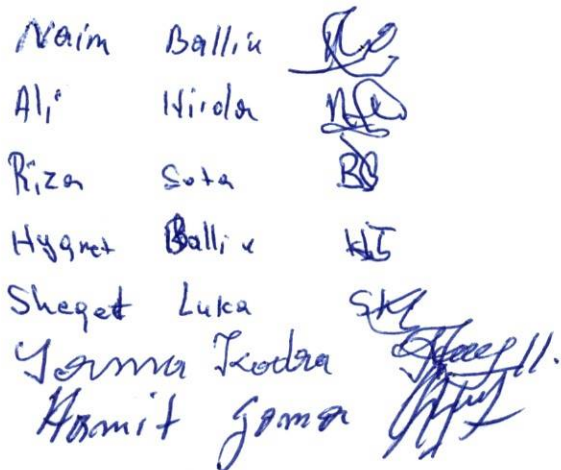 Naim Balliu
Ali Hirda
Riza Sota
Hygnet Balliu
Sheqet Luka
Kodra
Hamit Goma